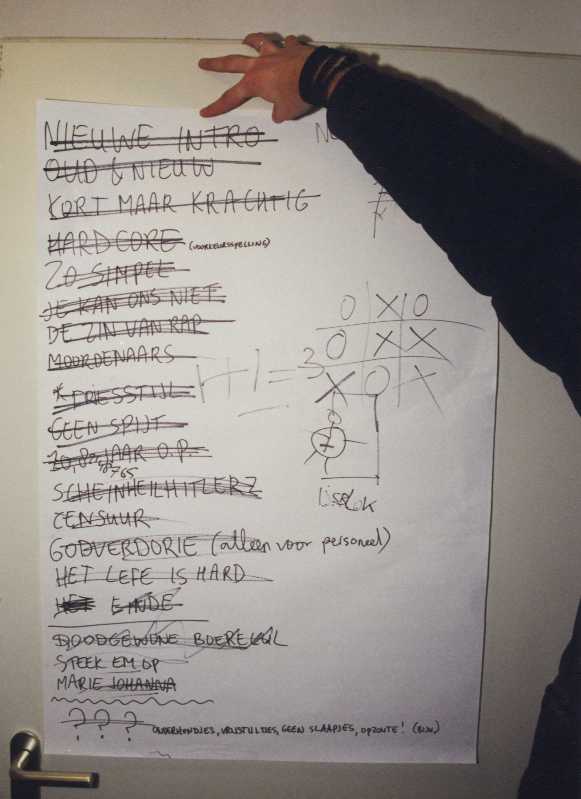 NIEUWE INTRO
OUD & NIEUW
KORT MAAR KRACHTIG
HARDCORE (VOORKEURSSPELLING)
ZO SIMPEL
JE KAN ONS NIET
DE ZIN VAN RAP
MOORDENAARS
1+1=3
O X O
O X X
X O X
*TRIESSTIJL
GEEN SPIJT
JAAR O.P.
SCHEINHEILHITLERZ
CENSUUR
GODVERDORIE (alleen voor personeel)
HET LEFE IS HARD
HET EINDE
DOODGEWONE BOERELUL
STEEK EM OP
MARIE JOHANNA
? ? ? GEEN SLAAPJES, OPZOUTE! (BIJV.)